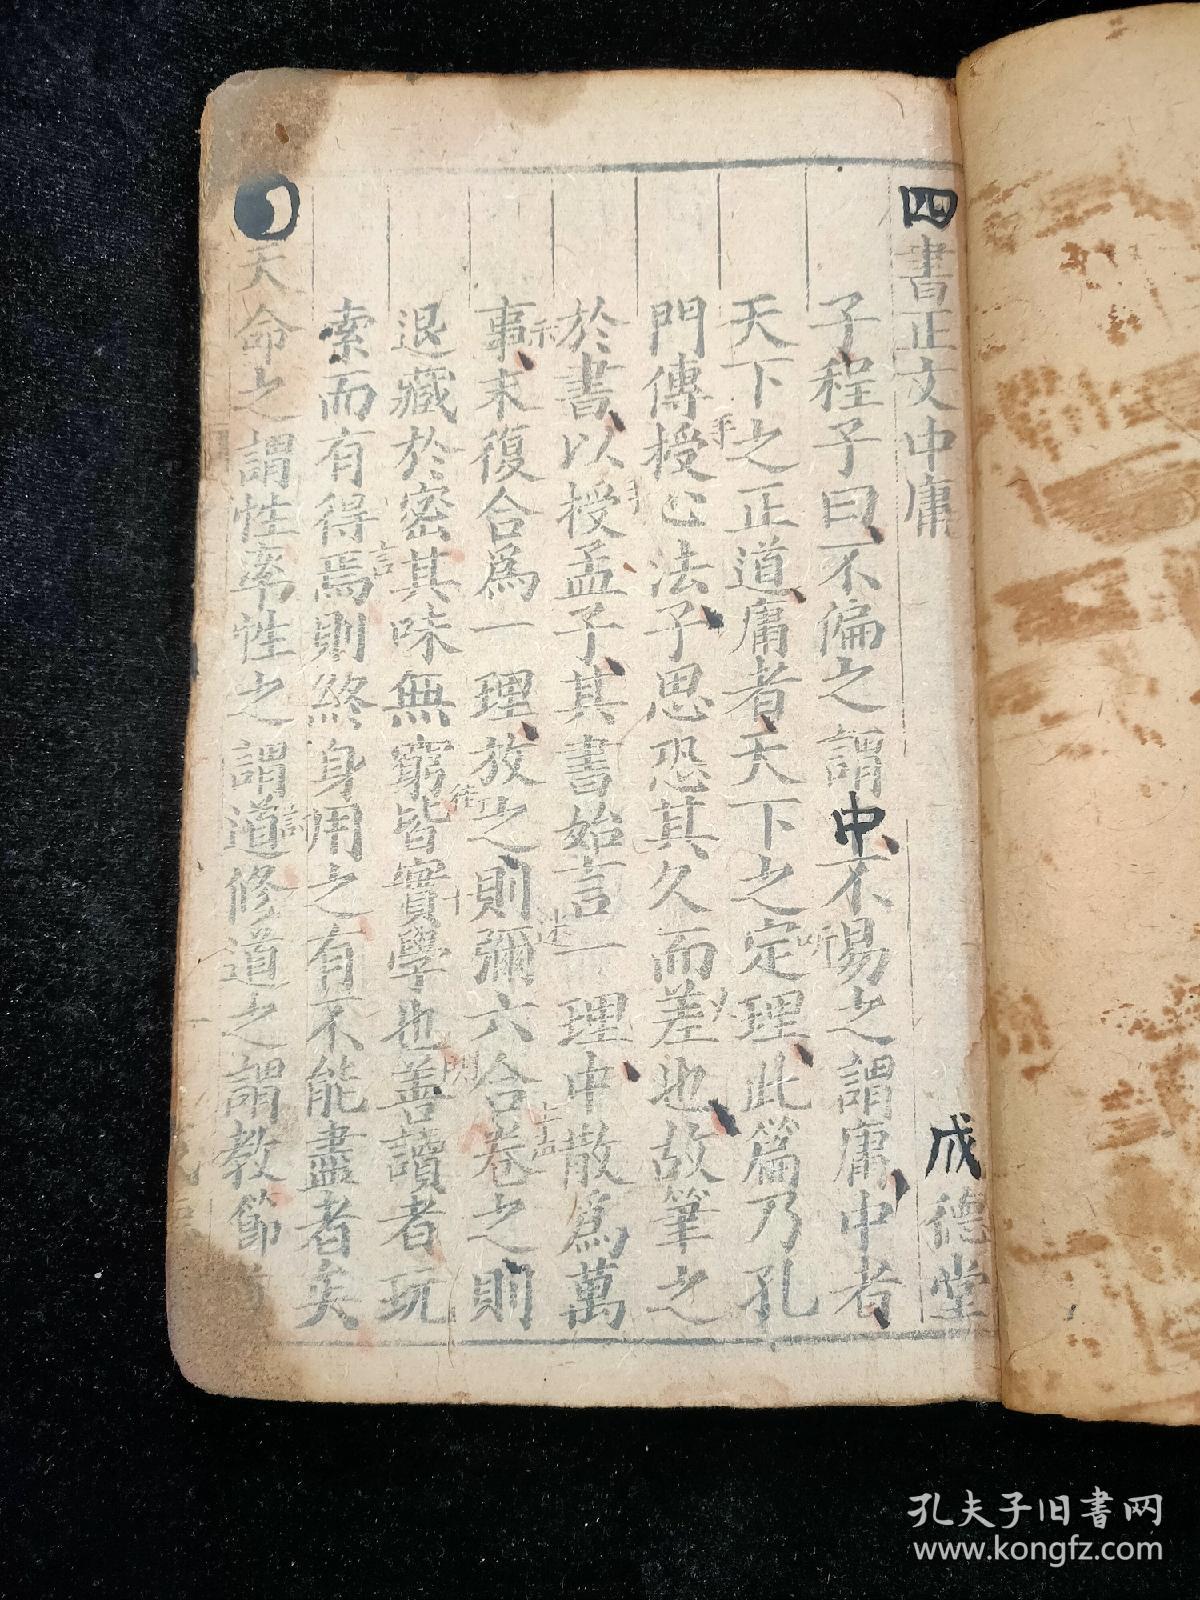 四書正文中庸 成德堂
子程子曰不偏之謂中不易之謂庸中者
天下之正道庸者天下之定理此篇乃孔
門傳授心法子思恐其久而差也故筆之
於書以授孟子其書始言一理中散為萬
事末復合為一理放之則彌六合卷之則
退藏於密其味無窮皆實學也善讀者玩
索而有得焉則終身用之有不能盡者矣
天命之謂性率性之謂道修道之謂教節
孔夫子旧书网
www.kongfz.com